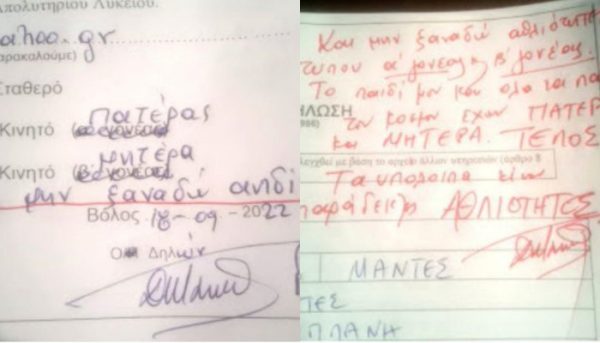 Απολυτηρίου Λυκείου.
ahoo.gr
παρακαλούμε)
Σταθερό
Πατέρας
Κινητό
μητέρα
Κινητό
μην ξαναδώ αηδί
Βόλος 18-09-2022
Ο Δηλών
Και μην ξαναδώ αθλιότητα
τυπου α' γονέας β' γονέας.
Το παιδί μου και όλα τα παι
ΗΛΩΣΗ
του κοσμου εχουν ΠΑΤΕΡ
986)
και ΜΗΤΕΡΑ. ΤΕΛΟΣ
λεγχθεί με βάση το αρχείο άλλων υπηρεσιών (άρθρο 8
Τα υπόλοιπα είναι
παράδειγμα ΑΘΛΙΟΤΗΤΟΣ
ΜΑΝΤΕΣ
ΤΕΣ
ΠΠΑΝΗ